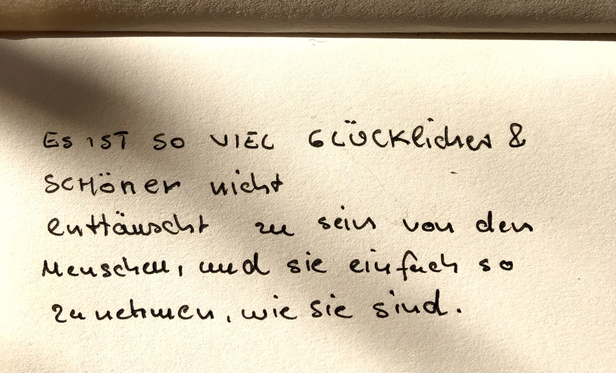 ES IST SO VIEL GLÜCKlicher &
SCHöner nicht
enttäuscht zu sein von den
Menschen, und sie einfach so
zu nehmen, wie sie sind.